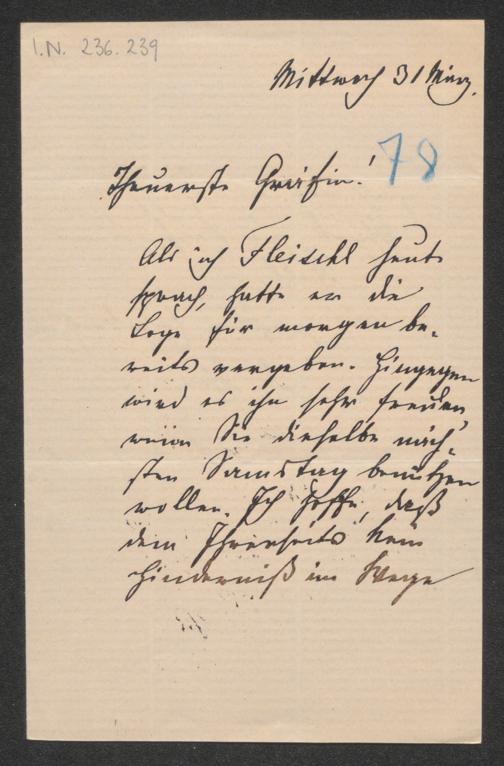 I.N. 236.239
Mittwoch 31 März.
78
Theuerste Gräfin!
Als ich Fleischl heute
sprach, hatte er die
Loge für morgen be-
reits vergeben. Hingegen
wird es ihn sehr freuen,
wenn Sie dieselbe näch-
sten Samstag benützen
wollen. Ich hoffe, daß
dem Ihrerseits kein
Hinderniß im Wege